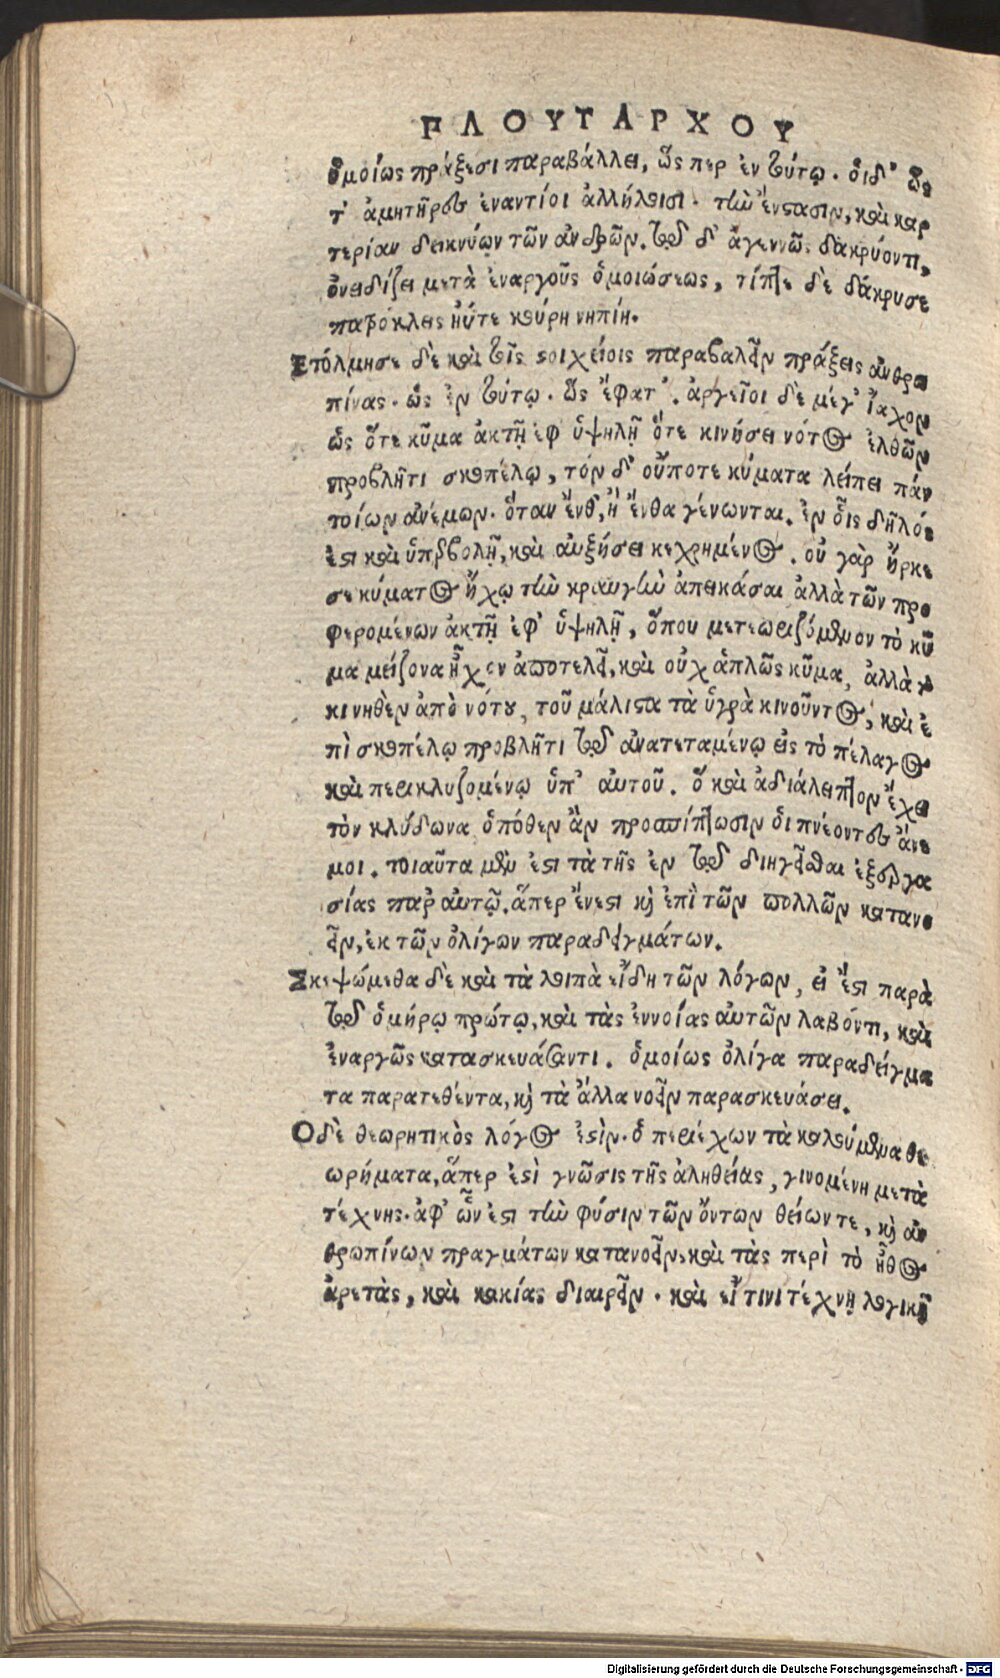 ΠΛΟΥΤΑΡΧΟΥ
ὁμοίως πράξεσι παραβάλλει, ὥς περ ἐν τούτῳ. οἱ δ' ὥς
τ' ἀμητῆρες ἐναντίοι ἀλλήλοισι. τὴν ἔνστασιν, καὶ καρ
τερίαν δεικνύων τῶν ἀνδρῶν. τῷ δ' ἀγεννῶς δακρύοντι,
ὀνειδίζει μετὰ ἐναργοῦς ὁμοιώσεως, τίπτε δὲ δάκρυσε
πατρόκλεις ἠΰτε κούρη νηπίη.
Ἐτόλμησε δὲ καὶ τοῖς στοιχείοις παραβαλεῖν πράξεις ἀνθρω
πίνας. ὡς ἐν τούτῳ. ὣς ἔφατ'. ἀργεῖοι δὲ μέγ' ἴαχον
ὡς ὅτε κῦμα ἀκτῇ ἐφ ὑψηλῇ ὅτε κινήσει νότος ἐλθὼν
προβλῆτι σκοπέλῳ, τὸν δ' οὔποτε κύματα λείπει πάν
τοίων ἀνέμων. ὅταν ἔνθ, ἢ ἔνθα γένωνται. ἐν οἷς δῆλός
ἐστι καὶ ὑπερβολῇ, καὶ αὐξήσει κεχρημένος. οὐ γὰρ ἤρκε
σε κύματος ἤχῳ τὴν κραυγὴν ἀπεικάσαι ἀλλὰ τῶν προ
φερομένων ἀκτῇ ἐφ' ὑψηλῇ, ὅπου μετεωριζόμενον τὸ κῦ
μα μείζονα ἦχον ἀποτελεῖ, καὶ οὐχ ἁπλῶς κῦμα, ἀλλὰ τὸ
κινηθὲν ἀπὸ νότου, τοῦ μάλιστα τὰ ὑγρὰ κινοῦντος, καὶ ἐ
πὶ σκοπέλῳ προβλῆτι τῷ ἀνατεταμένῳ εἰς τὸ πέλαγος
καὶ περικλυζομένῳ ὑπ' αὐτοῦ. ὃ καὶ ἀδιάλειπτον ἔχει
τὸν κλύδωνα ὁπόθεν ἂν προσπίπτωσιν οἱ πνέοντες ἄνε
μοι. τοιαῦτα μὲν ἐστι τὰ τῆς ἐν τῷ διηγεῖσθαι ἐξεργα
σίας παρ' αὐτῷ. ἅπερ ἔνεστι καὶ ἐπὶ τῶν πολλῶν κατανο
εῖν, ἐκ τῶν ὀλίγων παραδειγμάτων.
Σκεψώμεθα δὲ καὶ τὰ λοιπὰ εἴδη τῶν λόγων, εἰ ἔστι παρὰ
τῷ ὁμήρῳ πρώτῳ, καὶ τὰς ἐννοίας αὐτῶν λαβόντι, καὶ
ἐναργῶς κατασκευάσαντι. ὁμοίως ὀλίγα παραδείγμα
τα παρατεθέντα, καὶ τὰ ἄλλα νοεῖν παρασκευάσει.
Ὁ δὲ θεωρητικὸς λόγος ἐστὶν. ὁ περιέχων τὰ καλούμενα θε
ωρήματα, ἅπερ ἐστὶ γνῶσις τῆς ἀληθείας, γινομένη μετὰ
τέχνης. ἀφ' ὧν ἐστι τὴν φύσιν τῶν ὄντων θείων τε, καὶ ἀν
θρωπίνων πραγμάτων κατανοεῖν, καὶ τὰς περὶ τὸ ἦθος
ἀρετὰς, καὶ κακίας διαιρεῖν. καὶ εἴ τινι τέχνῃ λογικῇ
Digitalisierung gefördert durch die Deutsche Forschungsgemeinschaft - DFG